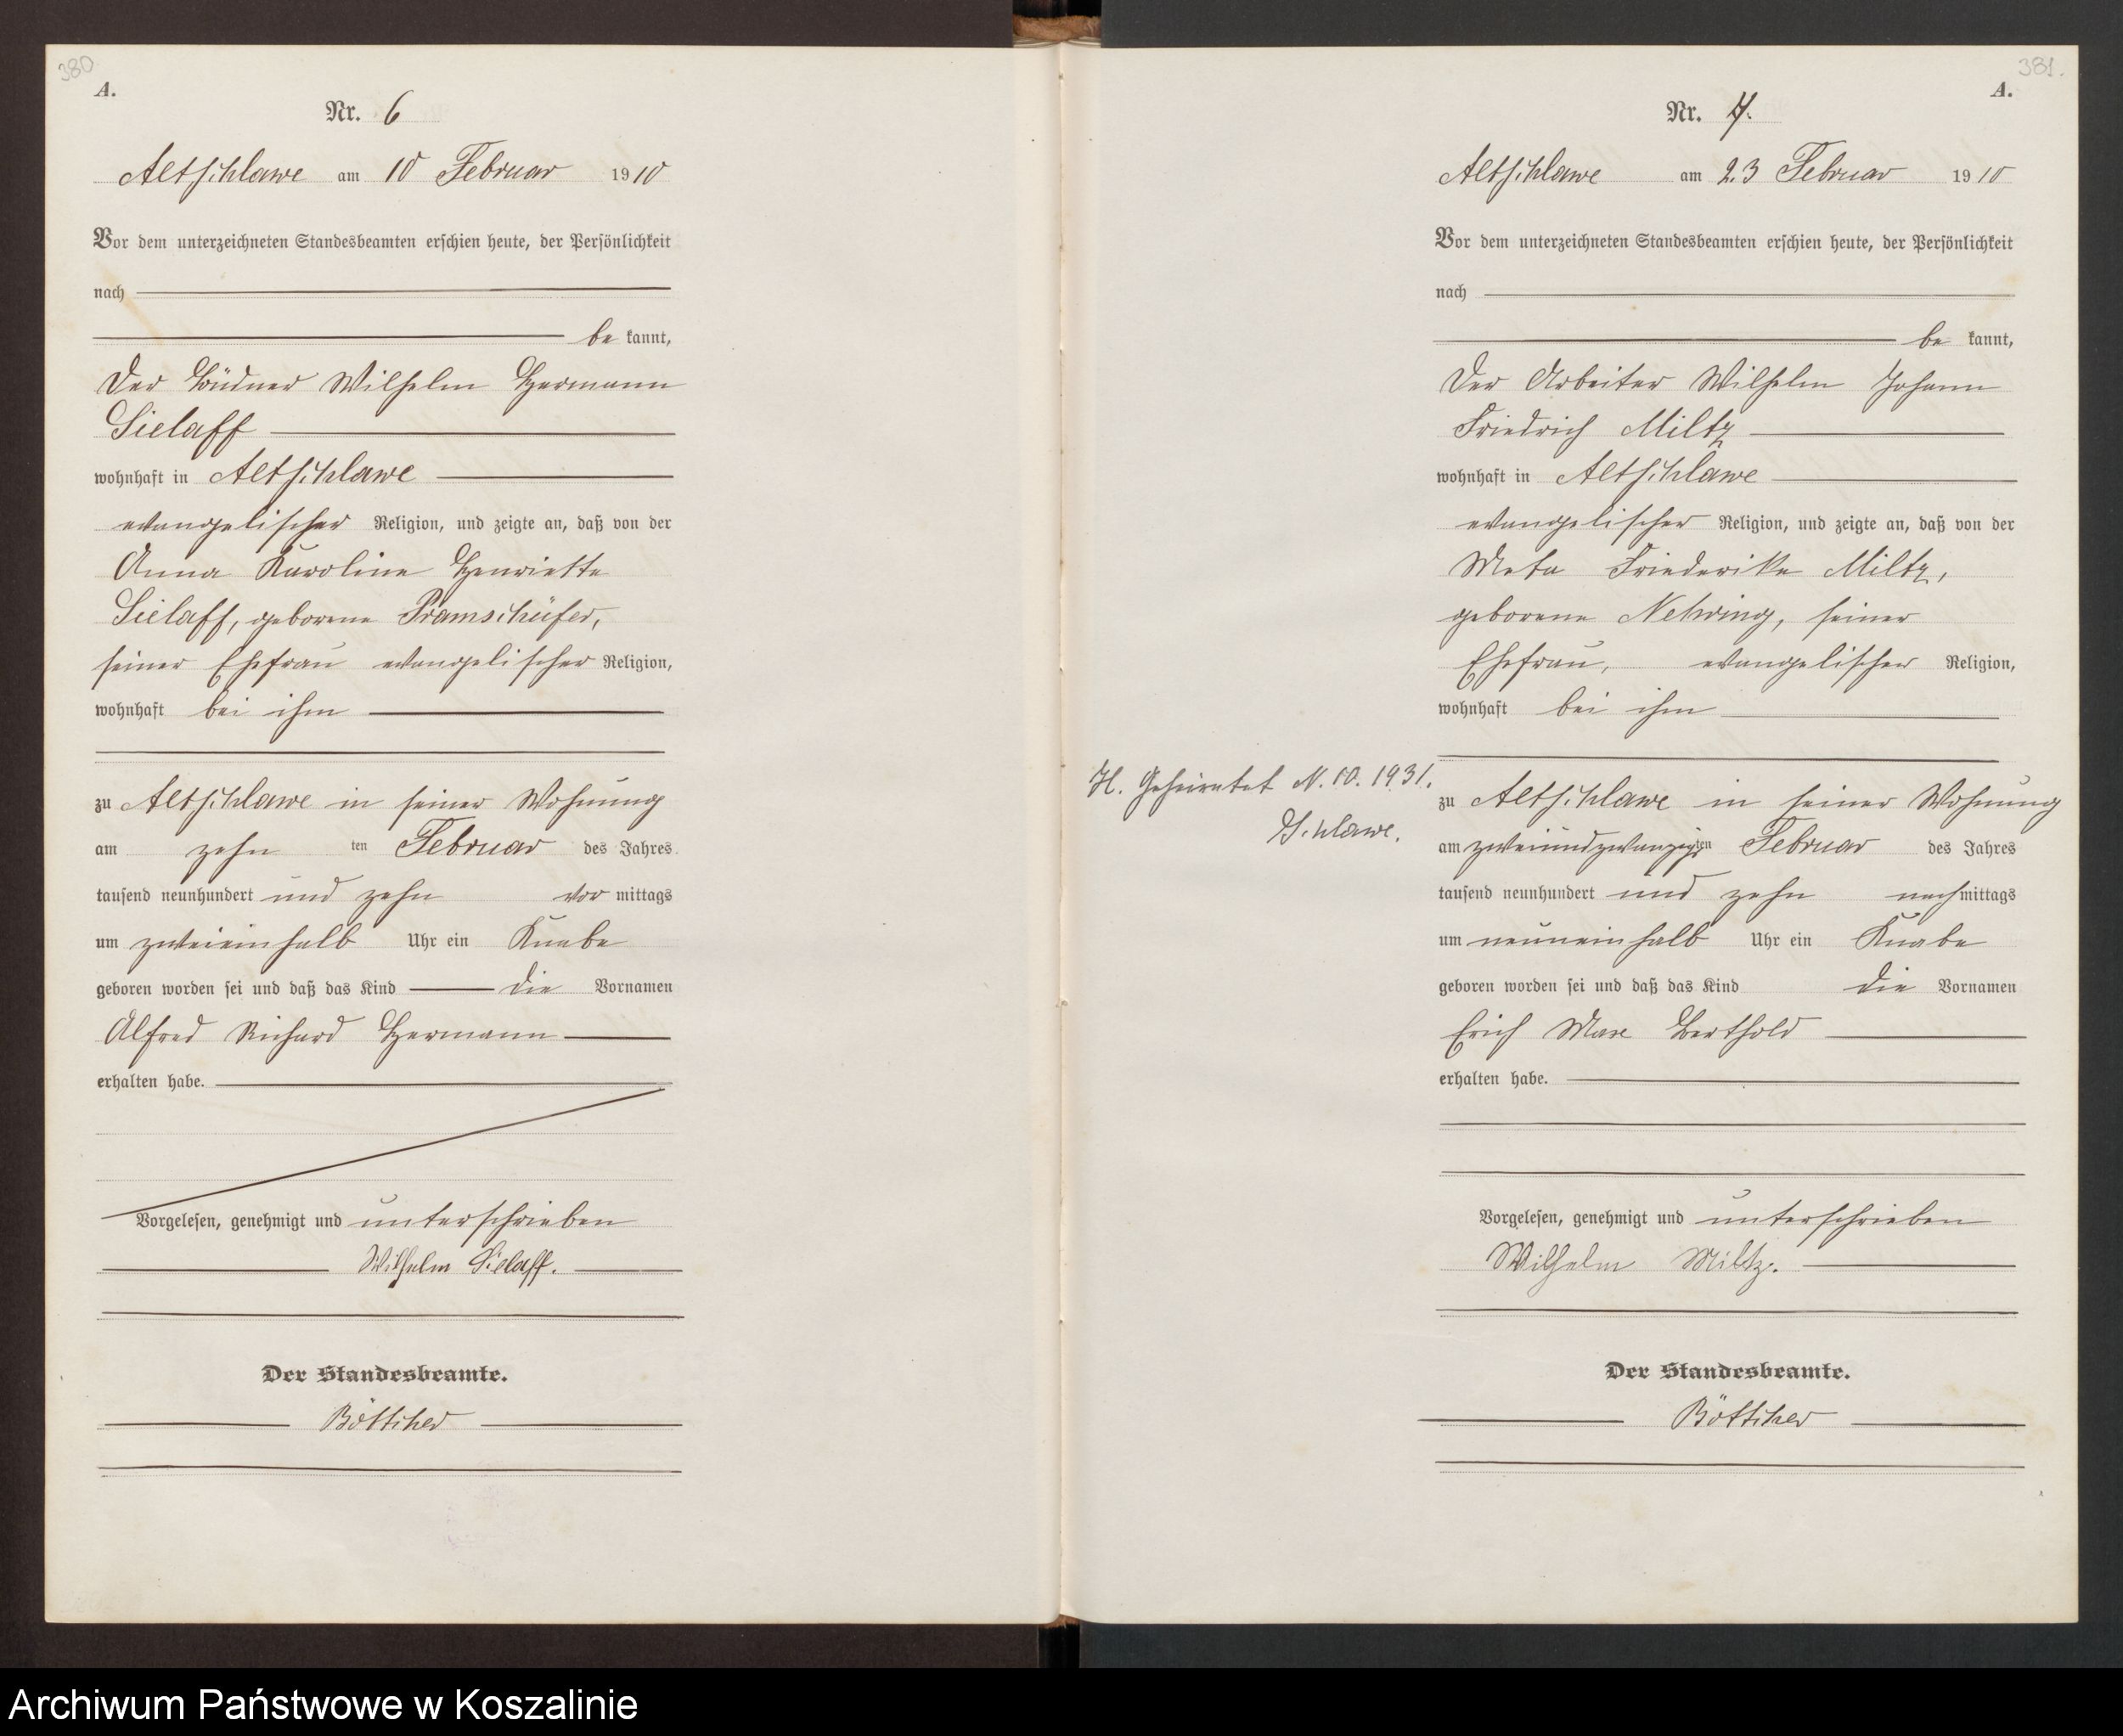 380
A.
Nr. 6
Altschlawe am 10 Februar 1910
Vor dem unterzeichneten Standesbeamten erschien heute, der Persönlichkeit
nach
be kannt,
der Büdner Wilhelm Hermann
Sielaff
wohnhaft in Altschlawe
evangelischer Religion, und zeigte an, daß von der
Anna Karoline Henriette
Sielaff, geborene Pramschüfer,
seiner Ehefrau evangelischer Religion,
wohnhaft bei ihm
zu Altschlawe in seiner Wohnung
am zehn ten Februar des Jahres
tausend neunhundert und zehn vor mittags
um zweieinhalb Uhr ein Knabe
geboren worden sei und daß das Kind die Vornamen
Alfred Richard Hermann
erhalten habe.
Vorgelesen, genehmigt und unterschrieben
Wilhelm Sielaff.
Der Standesbeamte.
Böttcher
381.
A.
Nr. 7.
Altschlawe am 23 Februar 1910
Vor dem unterzeichneten Standesbeamten erschien heute, der Persönlichkeit
nach
be kannt,
der Arbeiter Wilhelm Johann
Friedrich Miltz
wohnhaft in Altschlawe
evangelischer Religion, und zeigte an, daß von der
Meta Friederike Miltz,
geborene Nehring, seiner
Ehefrau, evangelischer Religion,
wohnhaft bei ihm
H. Geheiratet N. 10. 1931.
Schlawe.
zu Altschlawe in seiner Wohnung
am zweiundzwanzigsten Februar des Jahres
tausend neunhundert und zehn nachmittags
um neuneinhalb Uhr ein Knabe
geboren worden sei und daß das Kind die Vornamen
Erich Max Berthold
erhalten habe.
Vorgelesen, genehmigt und unterschrieben
Wilhelm Miltz.
Der Standesbeamte.
Böttcher
Archiwum Państwowe w Koszalinie